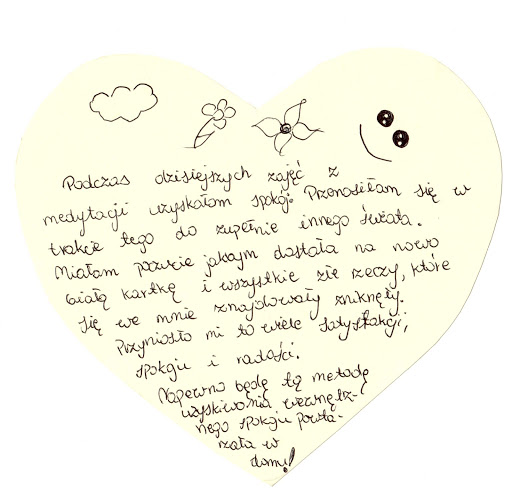 Podczas dzisiejszych zajęć z
medytacji uzyskałam spokój. Przenosiłam się w
trakcie tego do zupełnie innego świata.
Miałam poczucie jakbym dostała na nowo
białą kartkę i wszystkie złe rzeczy, które
się we mnie znajdowały zniknęły.
Przyniosło mi to wiele satysfakcji,
spokoju i radości.
Napewno będę tą metodę
uzyskiwania wewnętrz-
nego spokoju powta-
rzała w
domu!